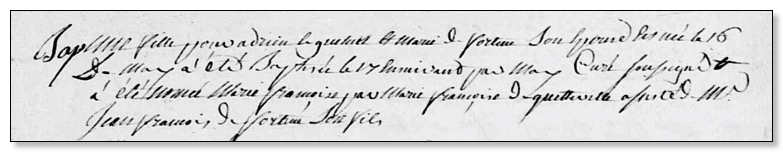 Bap une fille pour adrien le quesnet et Marie de fortine Son Epouse est née le 16
De May a été Baptisée le 17 Suivant par Moy Curé Soussigné et
a été nommée Marie francoise par Marie françoise de quetteville assisté de Mr
Jean francois de fortine Son fils